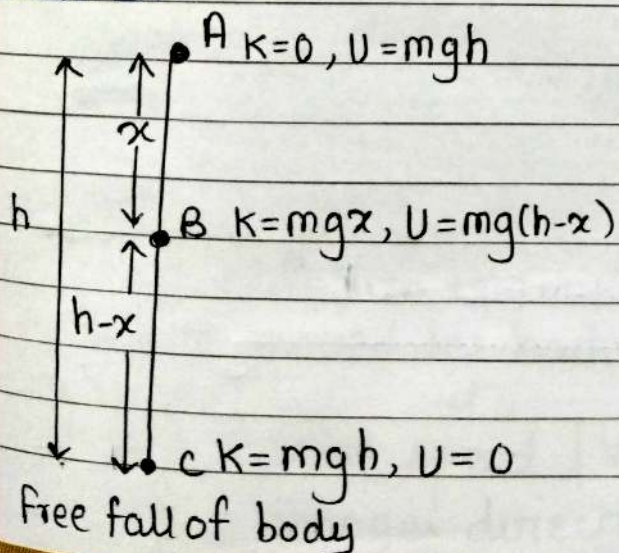 A K=0, U=mgh
x
h
B K=mgx, U=mg(h-x)
h-x
C K=mgh, U=0
free fall of body